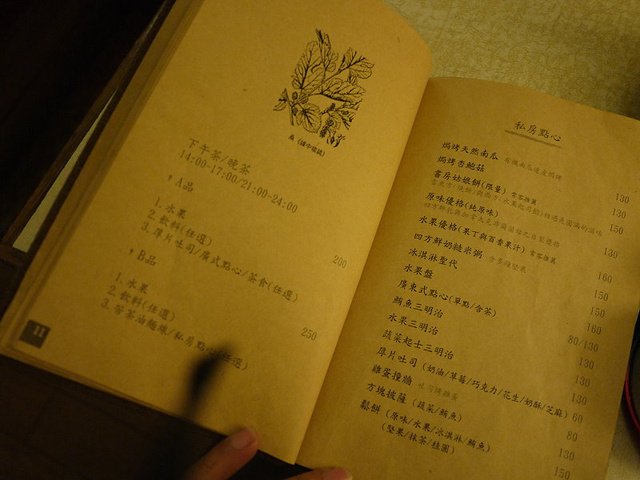 下午茶/晚茶
14:00-17:00/21:00-24:00
A品
1. 水果
2. 飲料(任選)
3. 厚片吐司/廣式點心/茶食(任選)
200
B品
1. 水果
2. 飲料(任選)
3. 苦茶油麵線/私房點心(任選)
250
11
私房點心
焗烤天然南瓜 130
焗烤杏鮑菇 130
書房姑娘餅(限量) 常客推薦 150
原味優格(純原味)
水果優格(果丁與百香果汁) 常客推薦 160
四方鮮奶糙米粥 150
冰淇淋聖代 150
水果盤 160
廣東式點心(單點/含茶) 80/130
鮪魚三明治 130
水果三明治 130
蔬菜起士三明治 130
厚片吐司 (奶油/草莓/巧克力/花生/奶酥/芝麻) 60
雞蛋撞牆 80
方塊披薩 (蔬菜/鮪魚) 130
鬆餅 (原味/水果/冰淇淋/鮪魚)
(堅果/抹茶/桂圓) 150